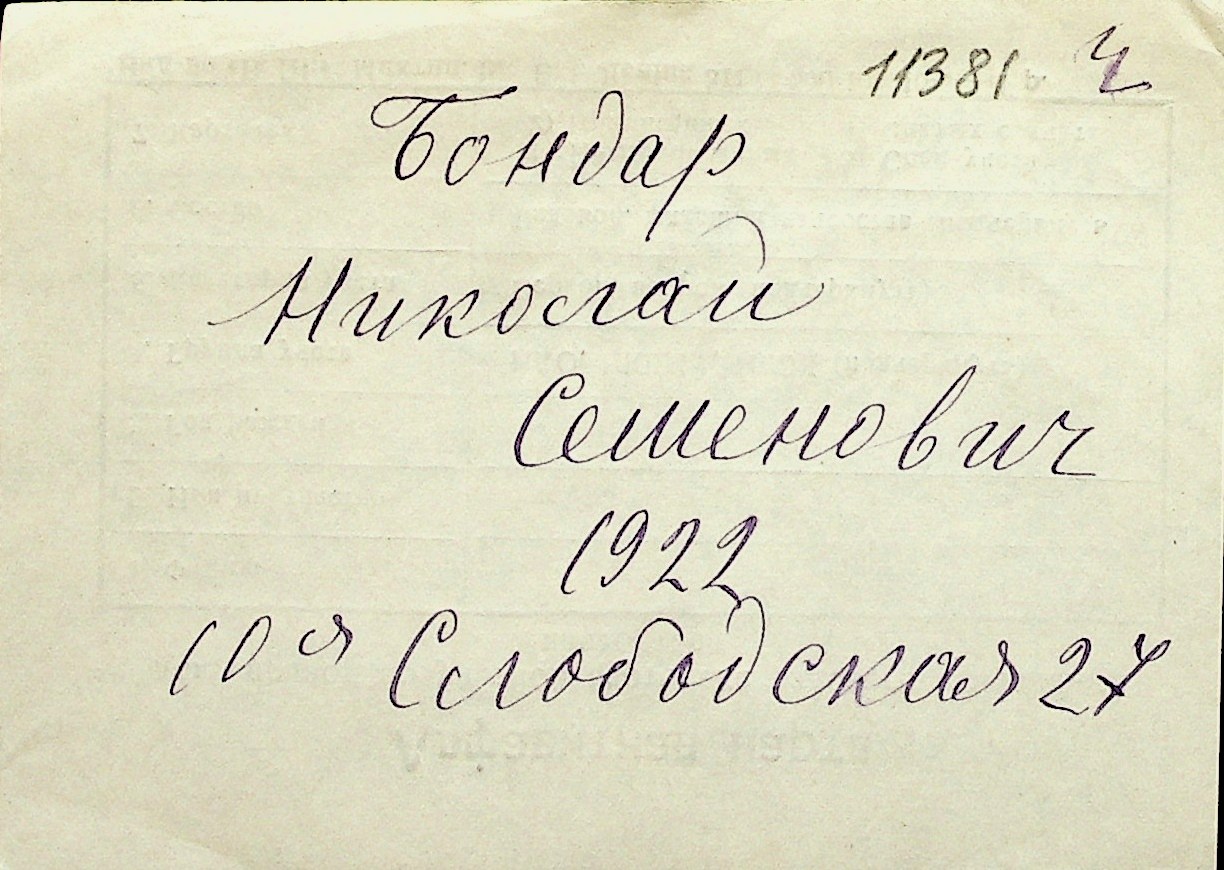 11381 Ч
Бондар
Николай
Семенович
1922
10я Слободская 27